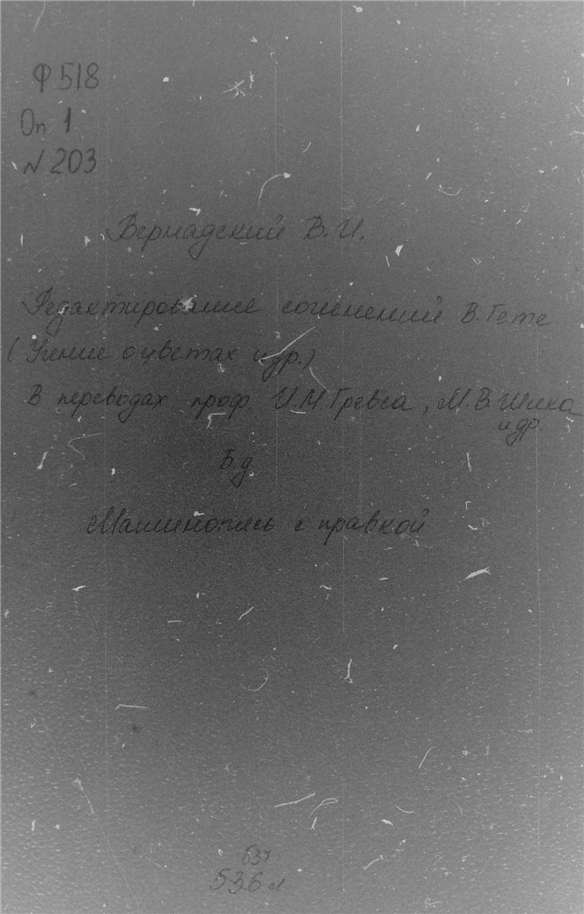 Ф 518
Оп 1
N 203
Вернадский В. И.
Редактирование сочинений В. Гете
(Учение о цветах и др.)
В переводах проф. И. М. Гревса, М. В. Шика
и др
Б. д
Машинопись с правкой
537
536 л